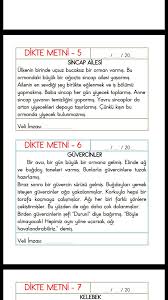 DİKTE METNİ - 5 / / 20
SİNCAP AİLESİ
Ülkenin birinde uçsuz bucaksız bir orman varmış. Bu
ormandaki büyük bir ağaçta sincap ailesi yaşarmış.
Ailenin en sevdiği şey birlikte eğlenmek ve iş bölümü
yapmakmış. Baba sincap her gün yiyecek toplarmış. Anne
sincap yuvanın temizliğini yaparmış. Yavru sincaplar da
artan yiyecekleri depoya taşırlarmış. Çünkü kışın bu
ormanda yiyecek bulunmazmış.
Veli İmzası:
DİKTE METNİ - 6 / / 20
GÜVERCİNLER
Bir avcı, bir gün büyük bir ormana gelmiş. Elinde ağ
ve buğday taneleri varmış. Bunlarla güvercinlere tuzak
hazırlamış.
Biraz sonra bir güvercin sürüsü gelmiş. Buğdayları yemek
isteyen güvercinler ağa yakalanmışlar. Korkuyla hepsi bir
tarafa kaçmaya çalışmışlar. Ağı her biri farklı yönlere
çekiyorlarmış. Bu yüzden de ağa daha çok dolanmışlar.
Birden güvercinlerin şefi "Durun!" diye bağırmış. "Böyle
olmayacak! Hepimiz aynı yöne uçarsak, ağı
havalandırabiliriz." demiş.
Veli İmzası:
DİKTE METNİ - 7 / / 20
KELEBEK